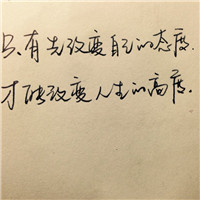 只有先改变自己的态度.
才能改变人生的高度.